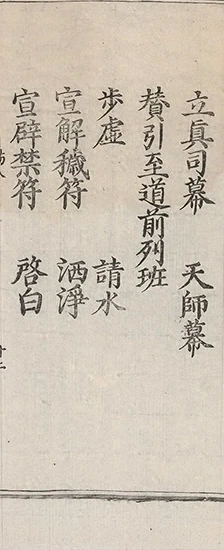 立真司幕　天師幕
賛引至道前列班
歩虛　請水
宣解穢符　洒淨
宣辟禁符　啓白